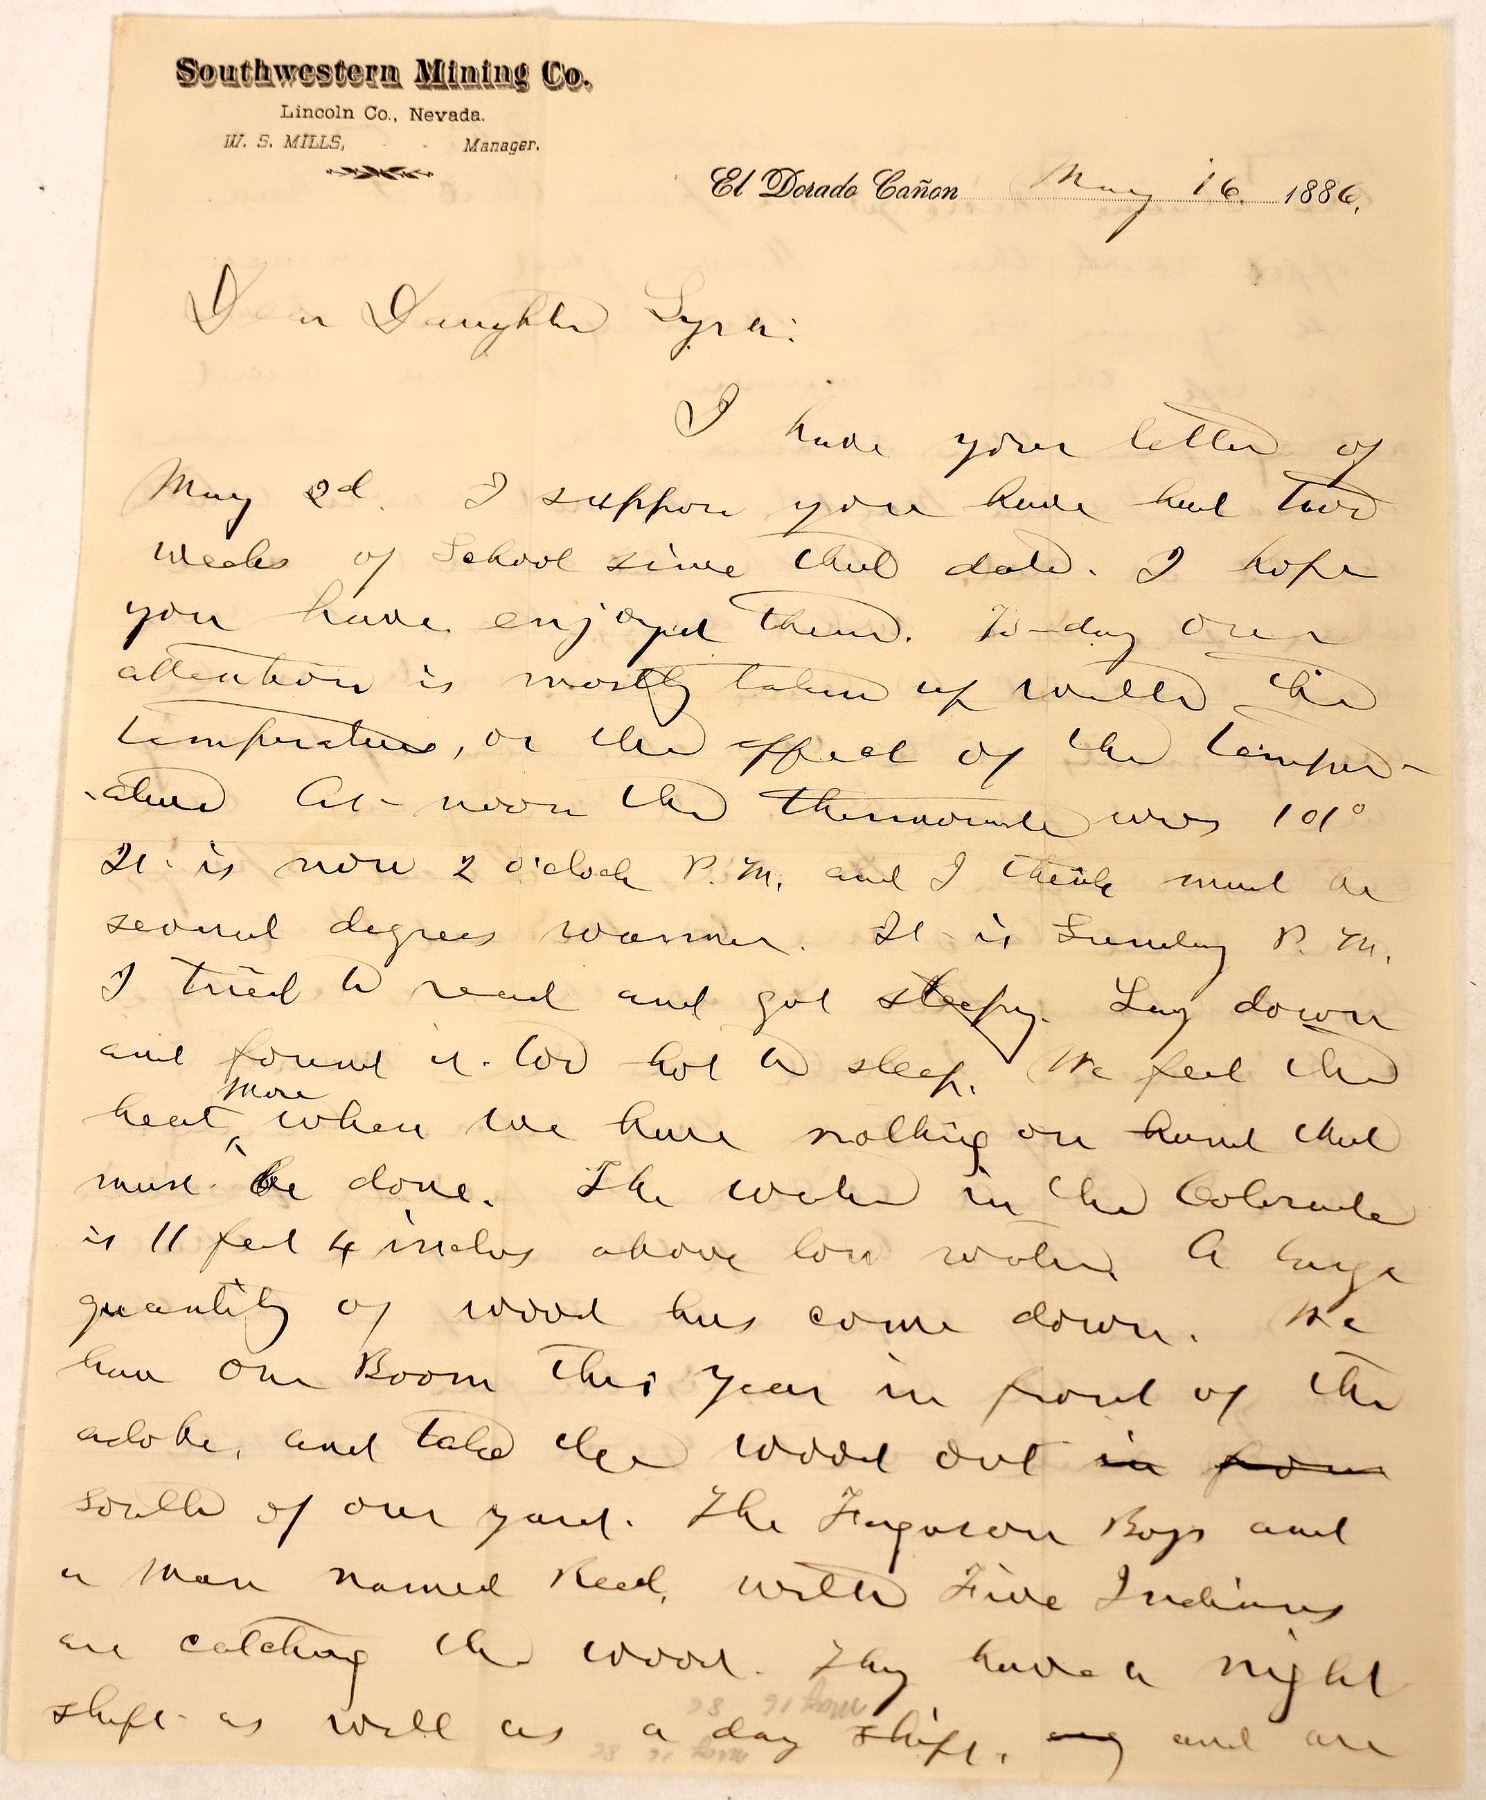 Southwestern Mining Co.
Lincoln Co., Nevada.
W. S. MILLS, - - Manager.
El Dorado Cañon May 16. 1886.
Dear Daughter Lyra:
I have your letter of
May 2d. I suppose you have had two
weeks of School since that date. I hope
you have enjoyed them. To-day our
attention is mostly taken up with the
temperature, or the effect of the temper-
-ature At noon the thermometer was 101°
It is now 2 o'clock P.M. and I think must be
several degrees warmer. It is Sunday P.M.
I tried to read and got sleepy. Lay down
and found it too hot to sleep. We feel the
more
heat ^ when we have nothing on hand that
must be done. The water in the Colorado
is 11 feet 4 inches above low water. A large
quantity of wood has come down. We
have our Boom this year in front of the
adobe, and take the wood out in from
South of our yard. The Ferguson Boys and
a man named Reed, with Five Indians
are catching the wood. They have a night
shift as well as a day shift, and are
May 16 86
May 16 86